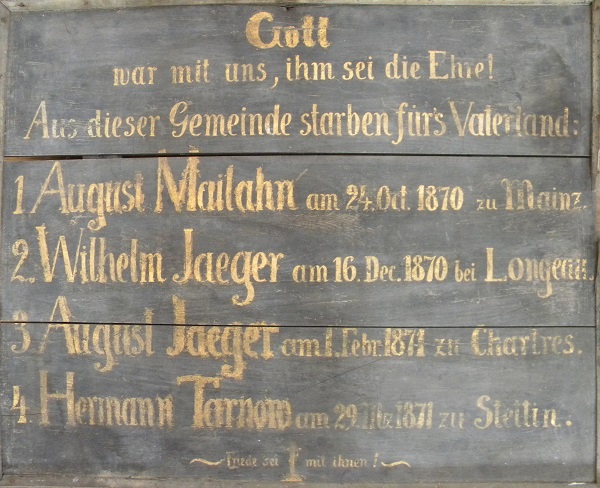 Gott
war mit uns, ihm sei die Ehre!
Aus dieser Gemeinde starben für's Vaterland:
1. August Mailahn am 24. Oct. 1870 zu Mainz.
2. Wilhelm Jaeger am 16. Dec. 1870 bei Longeau.
3 August Jaeger am 1. Febr. 1871 zu Chartres.
4. Hermann Tarnow am 29. Mz. 1871 zu Stettin.
Friede sei mit ihnen!